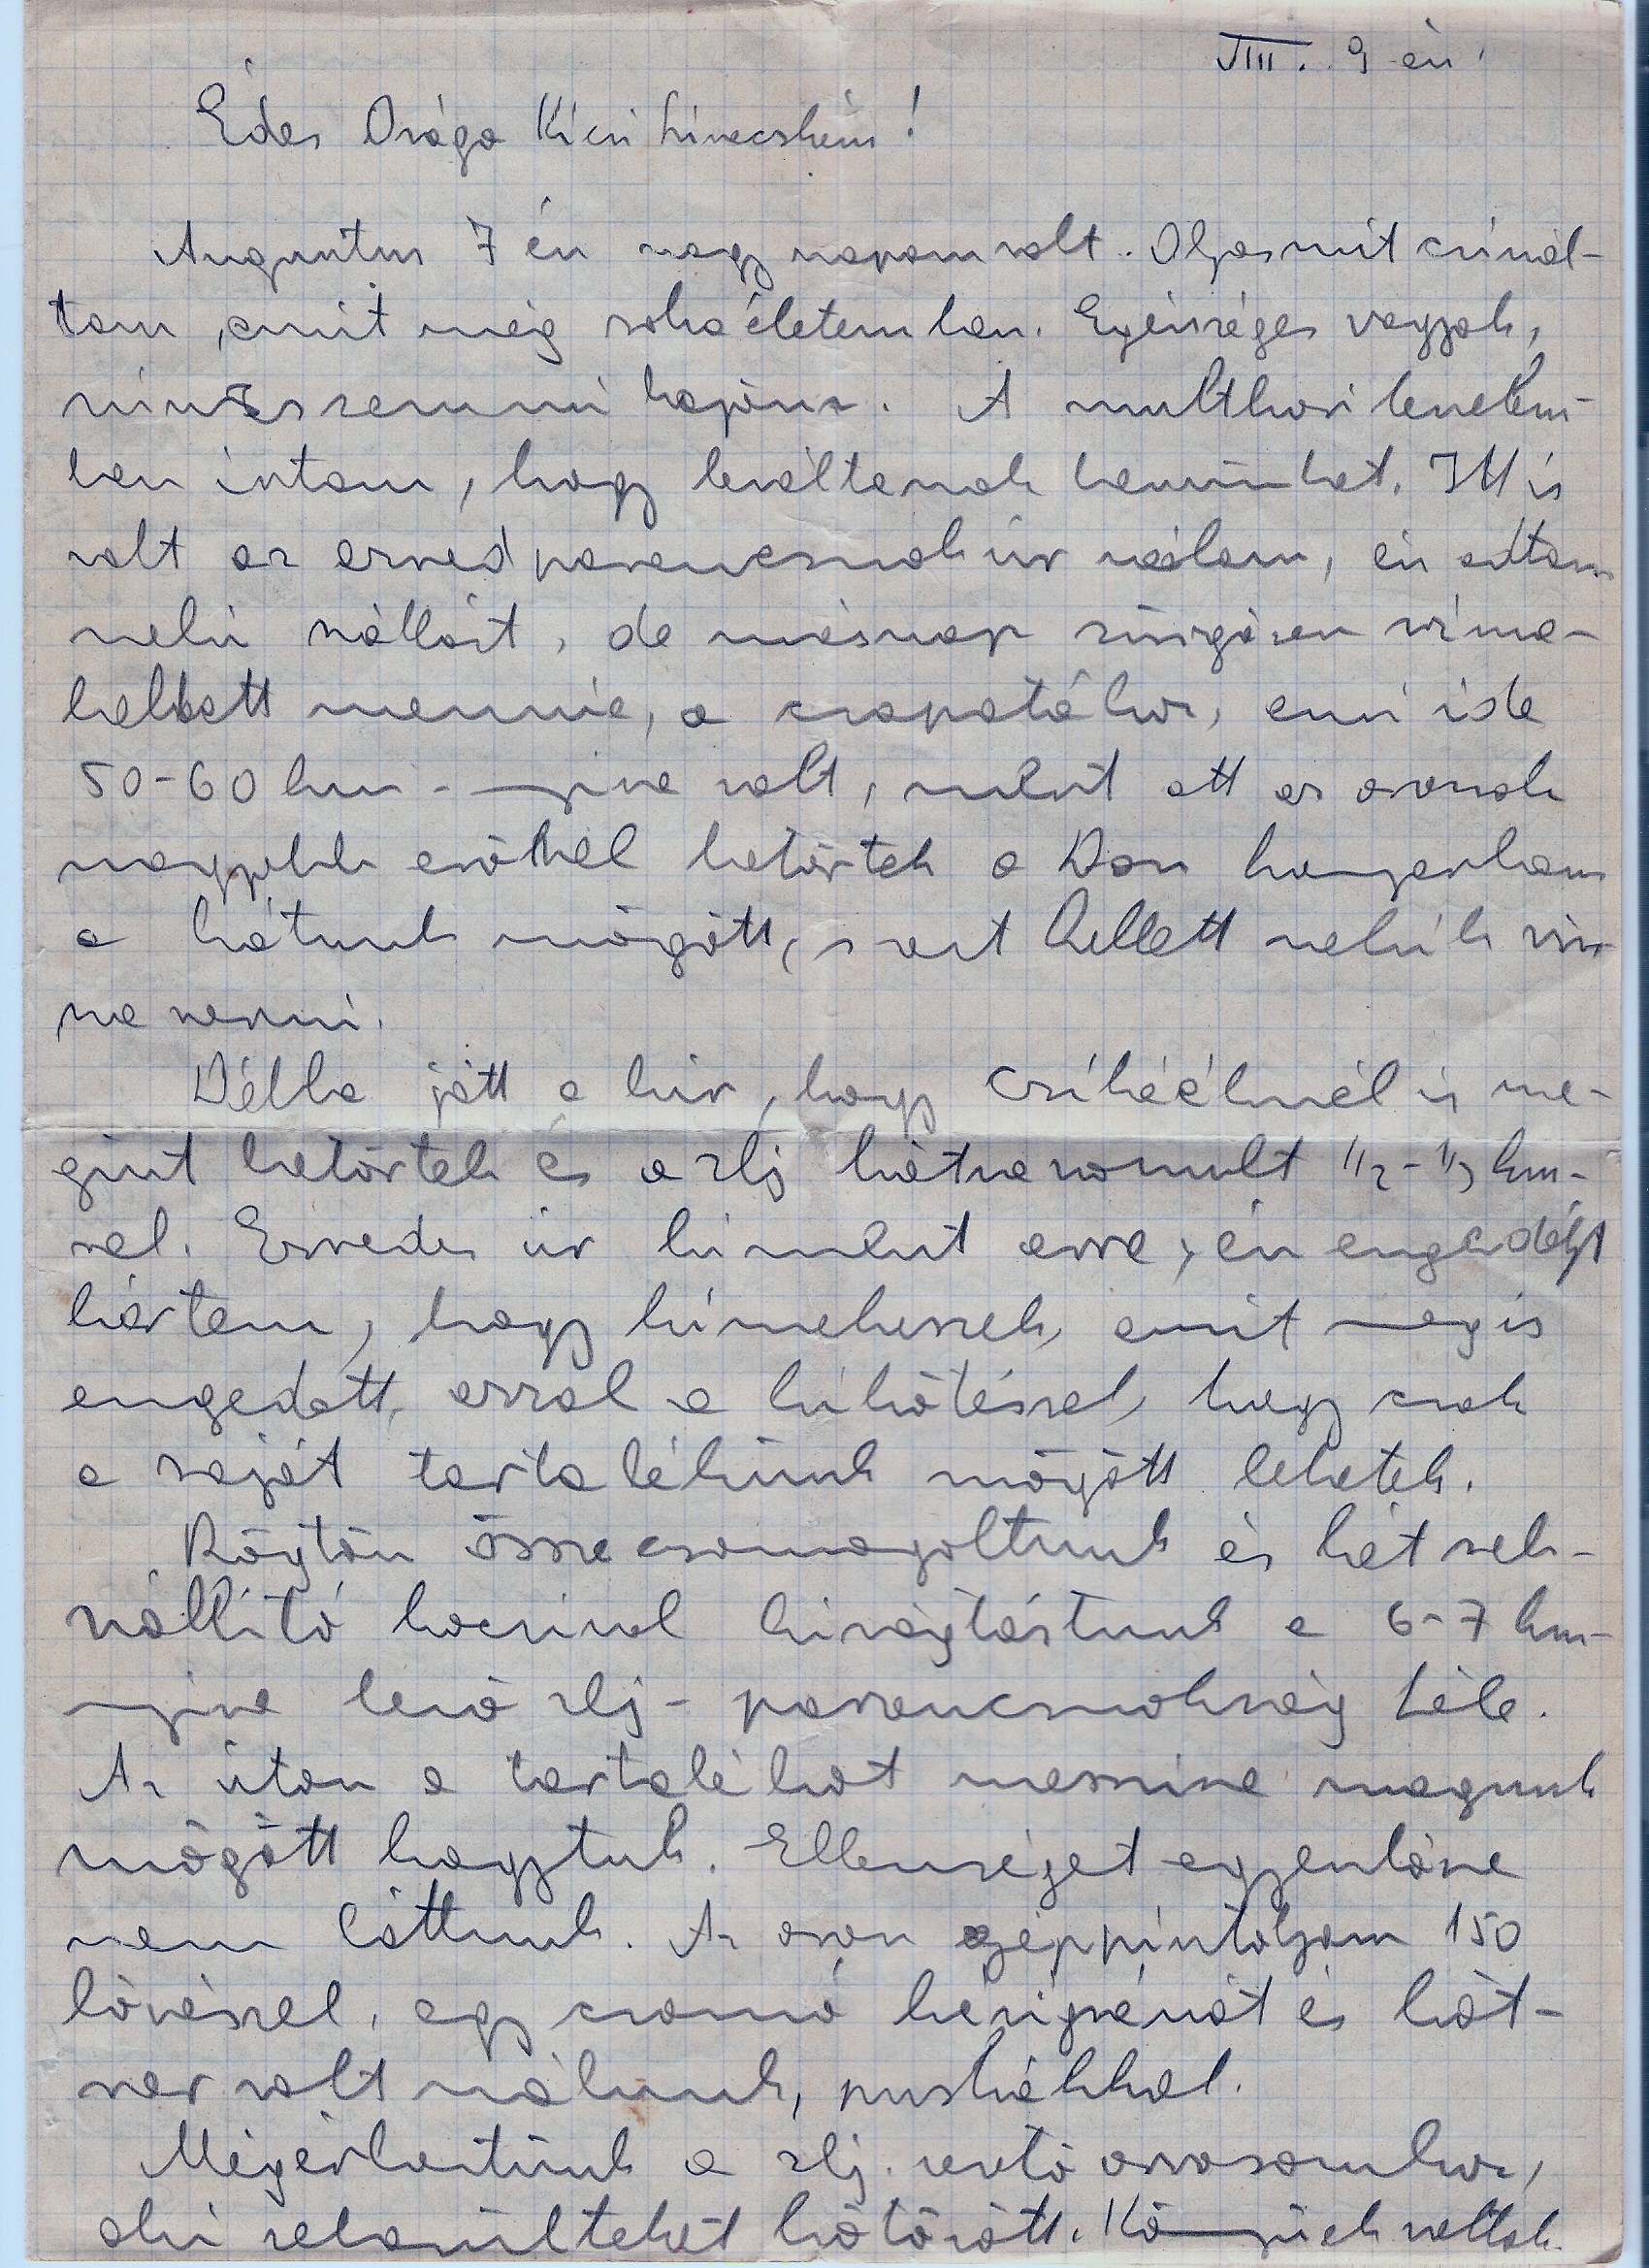 VIII. 9 én
Édes Drága Kicsi Szívecském!
Augusztus 7 én nagy napom volt. Olyasmit csinál-
tam, amit még soha életemben. Egészséges vagyok,
nincs semmi bajom. A multkori levelem-
ben írtam, hogy leváltanak bennünket. Itt is
volt az ezredparancsnok úr nálam, én adtam
neki szállást, de másnap sürgősen vissza
kellett mennie, a csapatához, ami ide
50-60 km-nyire volt, mert ott az oroszok
nagyobb erőkkel betörtek a Don kanyarban
a hátunk mögött, s azt kellett nekik visz
sza verni.
Délbe jött a hír, hogy is me-
gint betörtek és a zlj hátravonult 1/2-1/3 km-
rel. Ezredes úr kiment erre, én engedélyt
kértem, hogy kimehessek, amit meg is
engedett, azzal a kikötéssel, hogy csak
a saját tartalékunk mögött lehetek.
Rögtön összecsomagoltunk és két seb-
szállító kocsival kivágtáztunk a 6-7 km-
nyire levő zlj-parancsnokság felé.
Az úton a tartalékot messzire magunk
mögött hagytuk. Ellenséget egyenlőre
nem láttunk. Az orosz géppisztolyom 150
lövéssel, egy csomó kézigránát és hát-
ser volt nálunk, puskákkal.
Megérkeztünk a zlj. orvosomhoz,
aki sebesülteket kötözött. Könnyűek voltak.